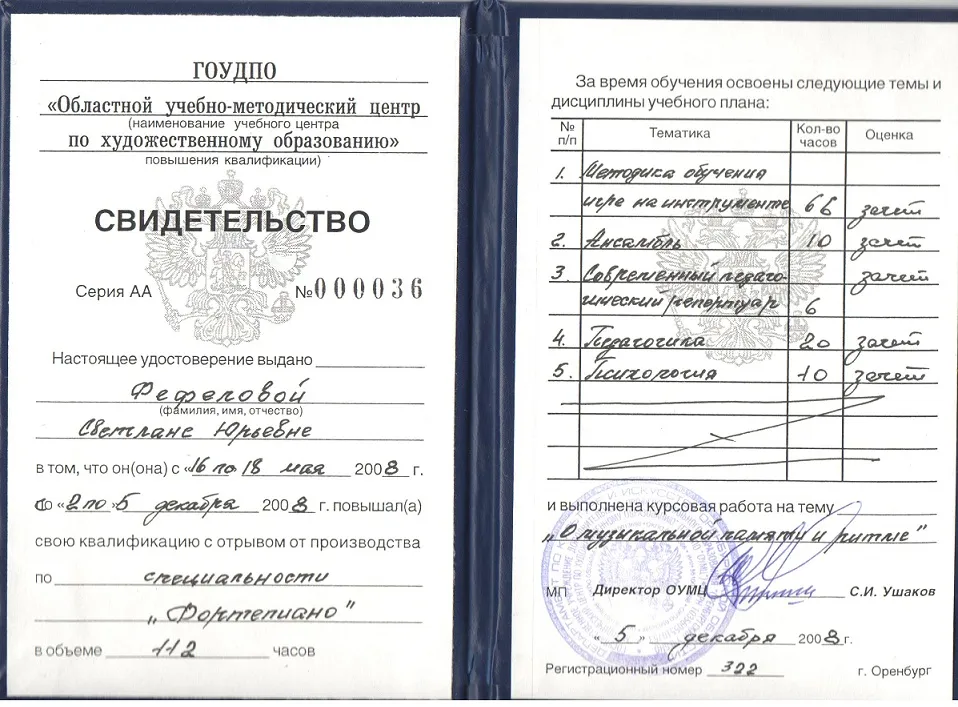 ГОУДПО
«Областной учебно-методический центр
(наименование учебного центра
по художественному образованию»
повышения квалификации)
СВИДЕТЕЛЬСТВО
Серия АА №000036
Настоящее удостоверение выдано
Фефеловой
(фамилия, имя, отчество)
Светлане Юрьевне
в том, что он(она) с «16 по 18 мая 2008 г.
по «2 по »5 декабря 2008 г. повышал(а)
свою квалификацию с отрывом от производства
по специальности
„Фортепиано"
в объеме 112 часов
За время обучения освоены следующие темы и
дисциплины учебного плана:
№ п/п Тематика Кол-во часов Оценка
1. Методика обучения
игре на инструменте 66 зачет
2. Ансамбль 10 зачет
3 Современный педаго- зачет
гический репертуар 6
4. Педагогика 20 зачет
5. Психология 10 зачет
и выполнена курсовая работа на тему
„О музыкальной памяти и ритме"
МП Директор ОУМЦ С.И. Ушаков
«5» декабря 2008г.
Регистрационный номер 322 г. Оренбург